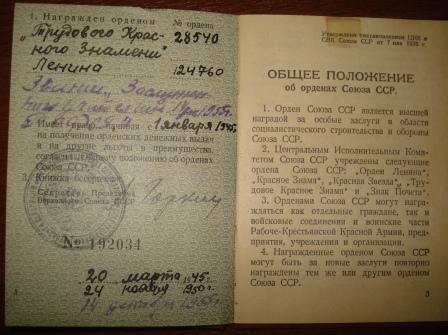 1. Награжден орденом № ордена
„Трудового Крас-
ного Знамени" 28540
Ленина 124760
Звание „Заслужен-
1955г.
2. Имеет право, начиная с 1 января 1945г.
на получение орденских денежных выдач
и на другие льготы и преимущества,
согласно Общему положению об орденах
Союза ССР.
3. Книжка бессрочная.
Секретарь Президиума
Верховного Совета СССР Горкин
№ 192034
20 марта 1945г.
24 ноября 1950г.
14 1955г.
Утверждено постановлением ЦИК и
СНК Союза ССР от 7 мая 1936 г.
ОБЩЕЕ ПОЛОЖЕНИЕ
об орденах Союза ССР.
1. Орден Союза ССР является высшей
наградой за особые заслуги в области
социалистического строительства и обороны
Союза ССР.
2. Центральным Исполнительным Коми-
тетом Союза ССР учреждены следующие
ордена Союза ССР: „Орден Ленина",
„Красное Знамя", „Красная Звезда", „Тру-
довое Красное Знамя" и „Знак Почета".
3. Орденами Союза ССР могут награ-
ждаться как отдельные граждане, так и
войсковые соединения и воинские части
Рабоче-Крестьянской Красной Армии, пред-
приятия, учреждения и организации.
4. Награжденные орденом Союза ССР
могут быть за новые заслуги повторно
награждены тем же или другим орденом
Союза ССР.
3